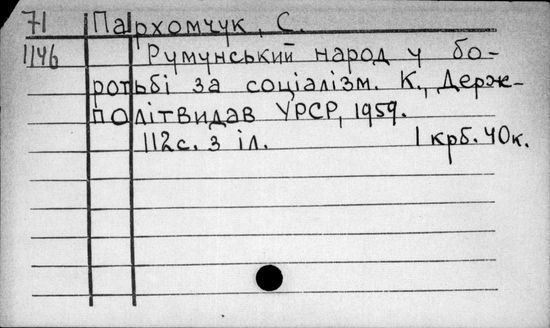 71 Пархомчук, С.
1146 Румунський народ у бо-
ротьбі за соціалізм. К., Держ-
політвидав УРСР, 1959.
112с. з іл. 1 крб. 40к.